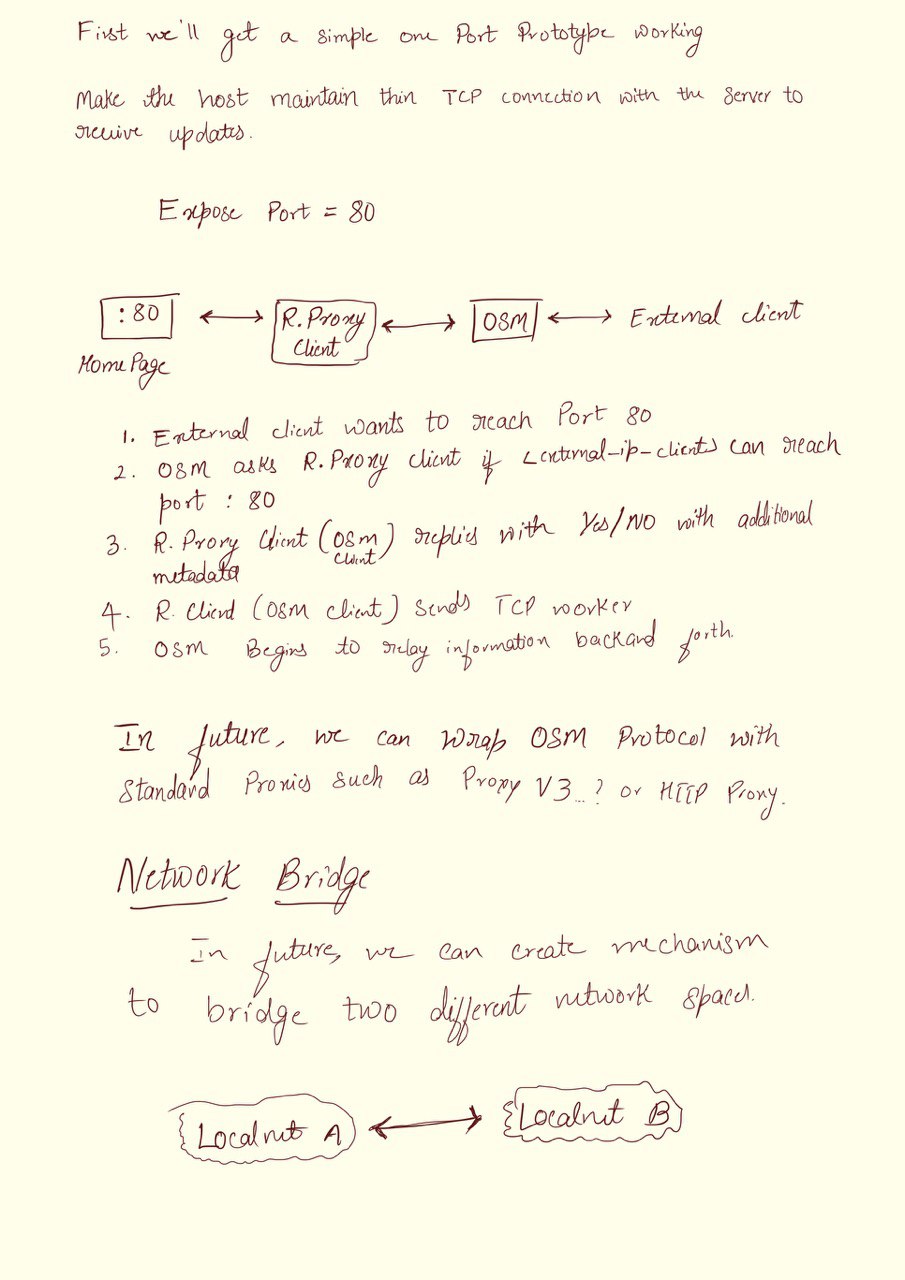 First we'll get a simple one Port Prototype working
Make the host maintain thin TCP connection with the server to
receive updates.
Expose Port = 80
:80
R.Proxy
Client
OSM
External client
HomePage
1. External client wants to reach Port 80
2. OSM asks R.Proxy client if <external-ip-clients> can reach
port : 80
3. R.Proxy Client (OSM client) replies with Yes/NO with additional
metadata
4. R.Client (OSM client) Sends TCP worker
5. OSM Begins to relay information back and forth.
In future, we can wrap OSM Protocol with
Standard Proxies such as Proxy V3...? or HTTP Proxy.
Network Bridge
In future, we can create mechanism
to bridge two different network spaces.
Localnet A
Localnet B